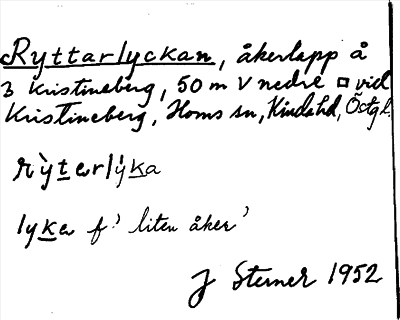 Ryttarlyckan, åkerlapp å
3 Kristineberg, 50 m V nedre □ vid
Kristineberg, Horns sn, Kinds hd, Östgl.
rỳterlýka
lyka f' liten åker'
J Sterner 1952